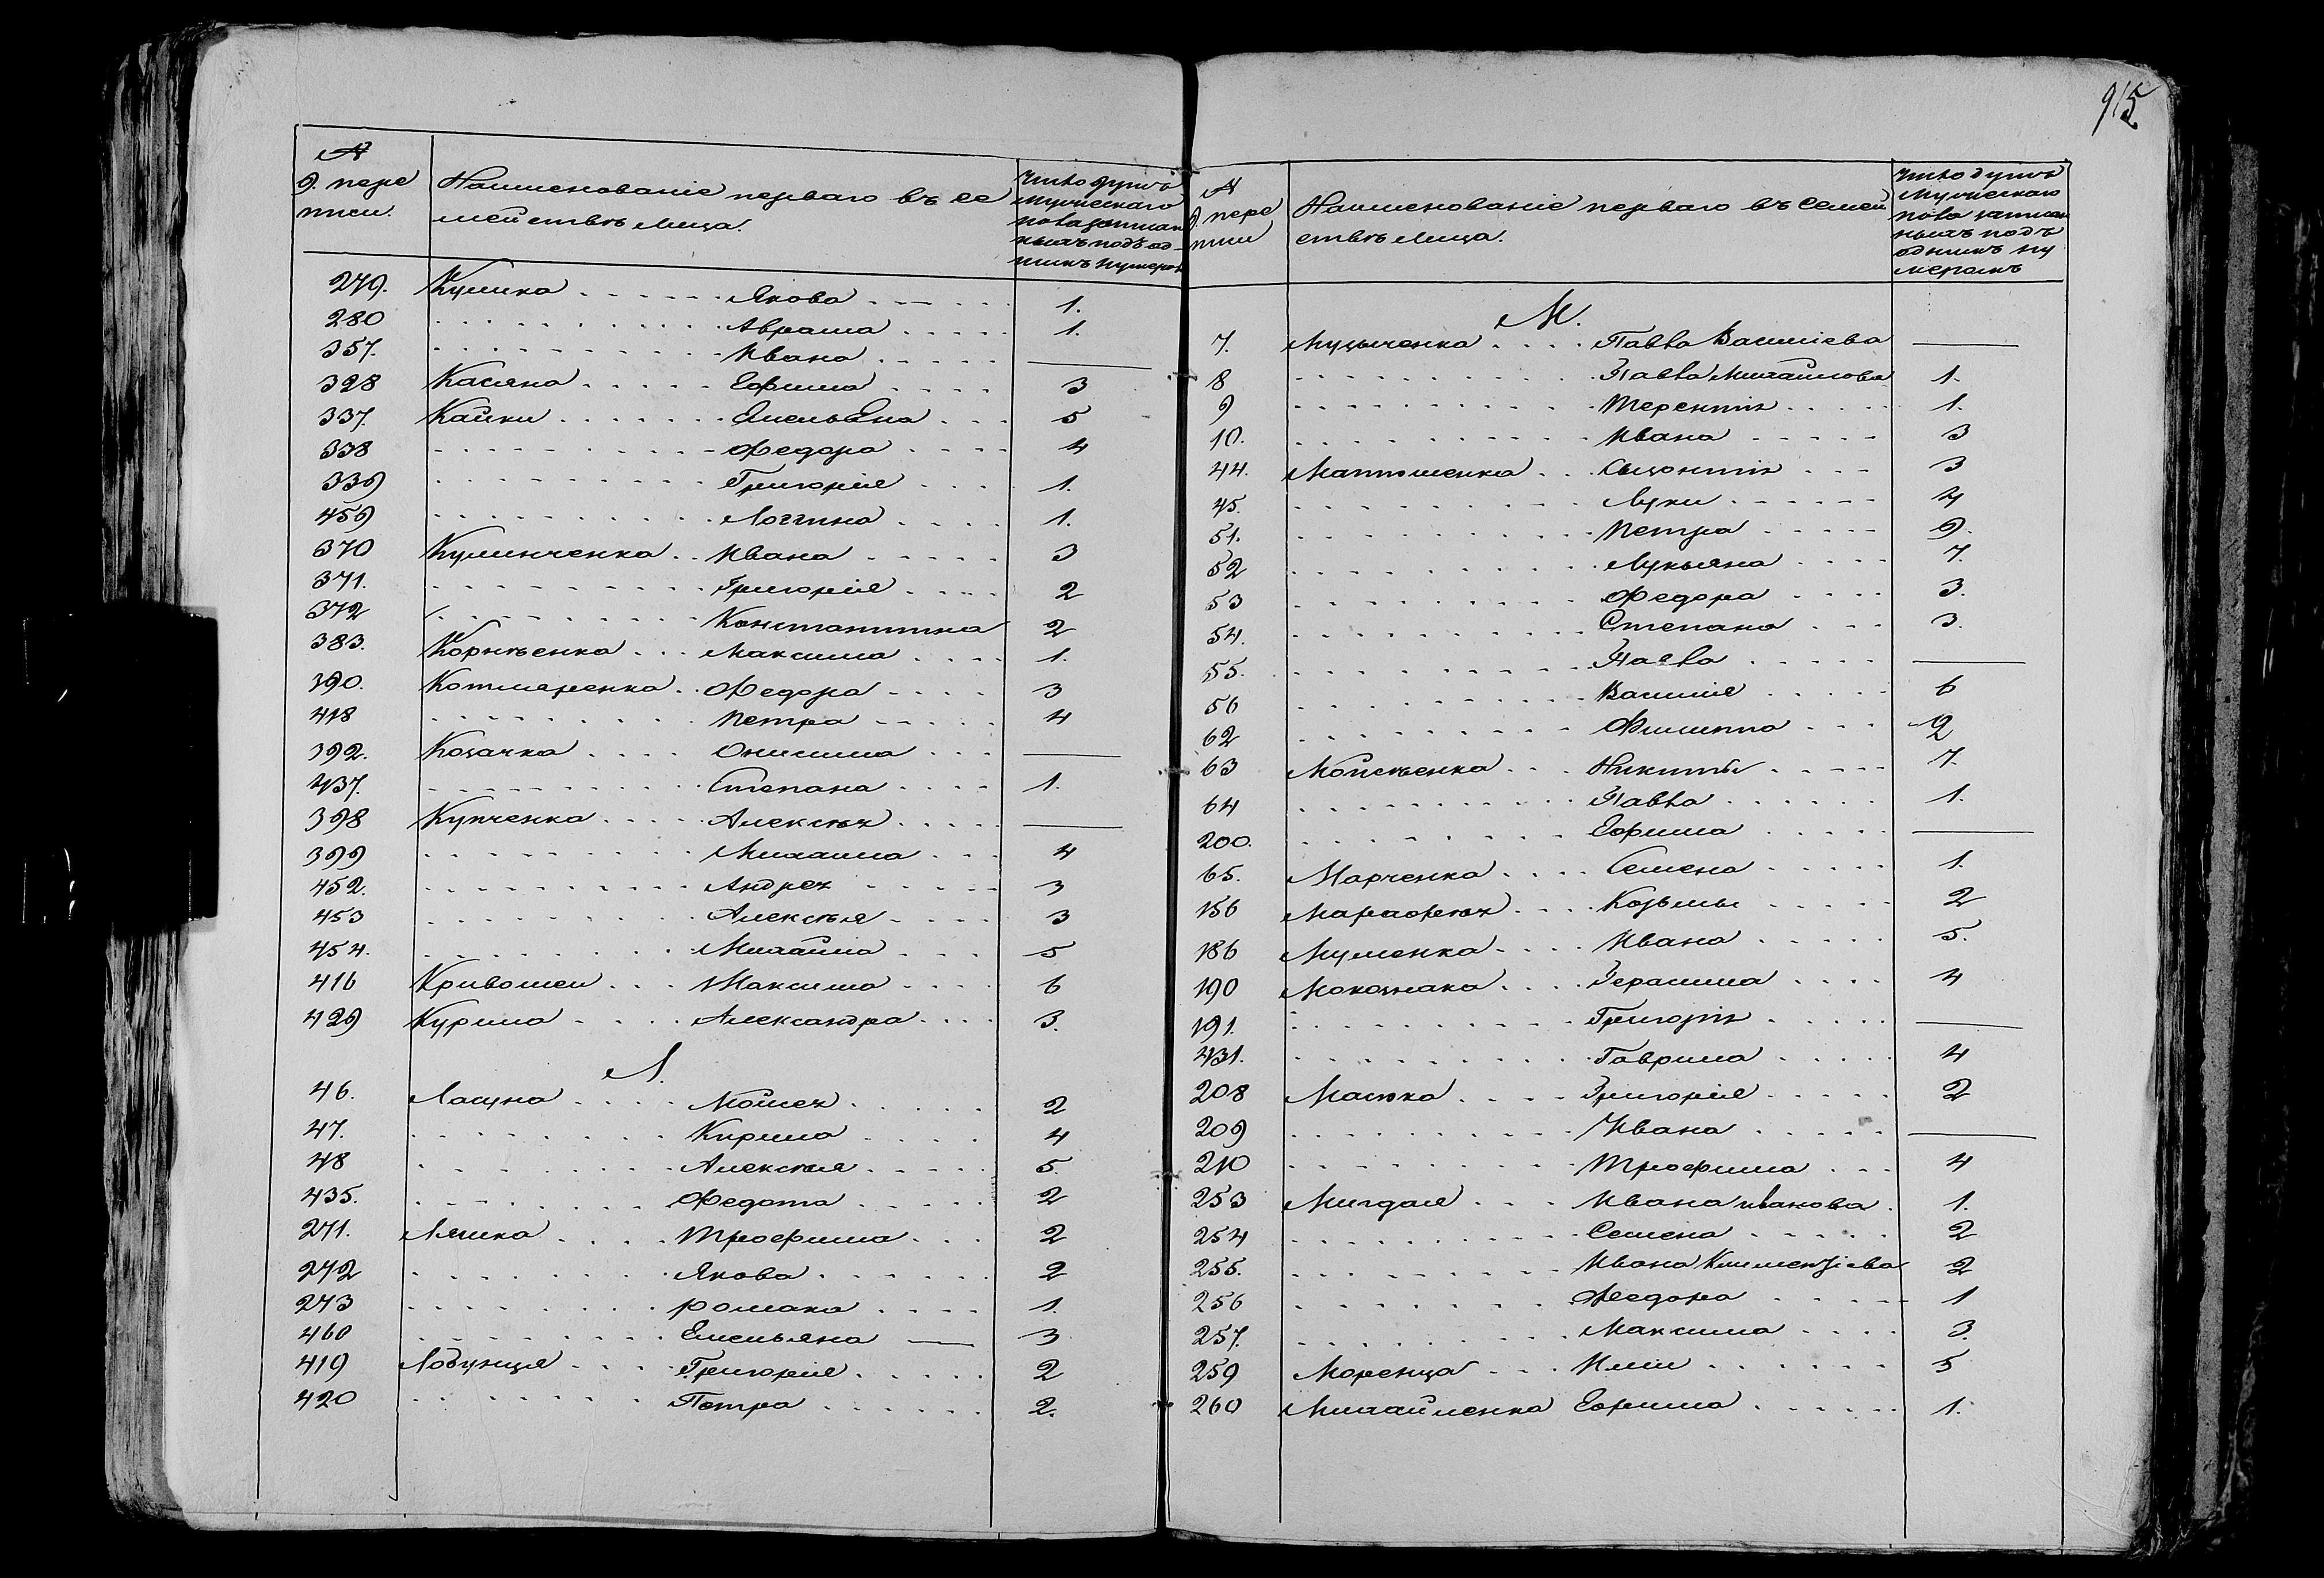 915
№
9. пере
писи.
Наименованіе перваго въ се
мействѣ лица.
Число душъ
мужескаго
пола записан
ныхъ подъ од-
нимъ нумеромъ
279. Кулика Якова 1.
280 Абрама 1.
357. Ивана —
328 Касяна Ефима 3
337. Кайки Емельяна 5
338 Федора 4
339 Григорія 1.
459 Логгина 1.
370 Куминченка Ивана 3
371. Григорія 2
372 Константина 2
383. Корнѣенка Максима 1.
390. Котляренка Федора 3
418 Петра 4
392. Козачка Онисима —
437. Степана 1.
398 Купченка Алексѣя —
399 Михаила 4
452. Андрея 3
453 Алексѣя 3
454. Михайла 5
416 Кривошеи Максима 6
429 Курила Александра 3.
Л.
46. Ласуна Мойсея 2
47. Кирила 4
48 Алексѣя 5.
435. Федота 2
271. Ляшка Трофима 2
272 Якова 2
273 Романа 1.
460 Емельяна 3
419 Лобунця Григорія 2
420 Петра 2.
№
9. пере
писи
Наименованіе перваго въ семей
ствѣ лица.
Число душъ
мужескаго
пола записан
ныхъ подъ
однимъ ну
меромъ
М.
7. Музыченка Павла Василіева —
8 Павла Михайлова 1.
9 Терентія 1.
10. Ивана 3
44. Матюшенка 3
45. Луки 4
51. Петра 9.
52 Лукьяна 7.
53 Федора 3.
54. Степана 3.
55. Павла —
56 Василія 6
62 Филиппа 2
63 Мойсѣенка Никиты 7.
64 Павла 1.
200. Ефима —
65. Марченка Семена 1.
156 Козьмы 2
186 Муленка Ивана 5.
190 Герасима 4
191. Григорія —
431. Гаврила 4
208 Масюка Григорія 2
209 Ивана —
210 Трофима 4
253 Мигдаля Ивана Иванова 1.
254 Семена 2
255. Ивана Климентіева 2
256 Федора 1
257. Максима 3.
259 Моренца Иліи 5
260 Михайленка Ефима 1.